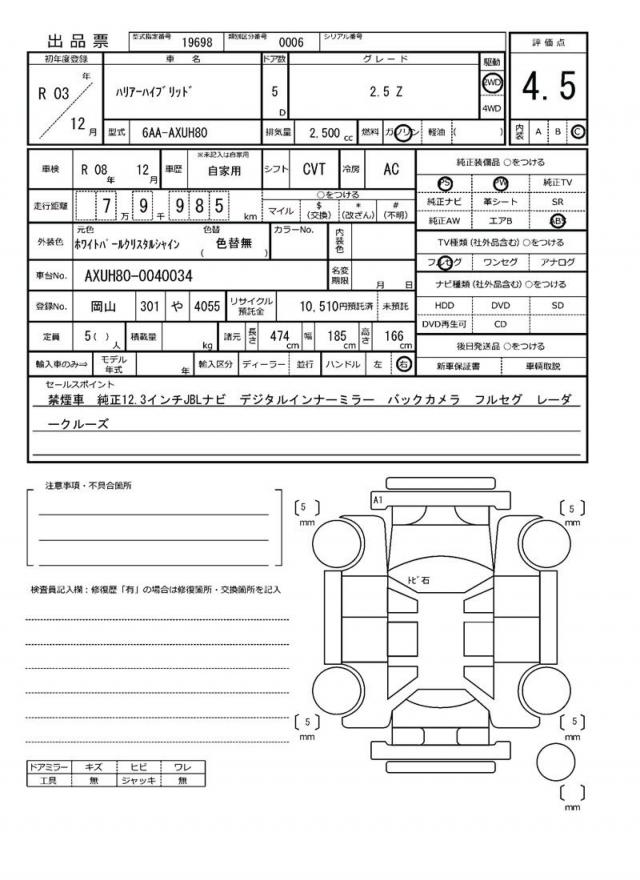 出品票 型式指定番号 19698 類別区分番号 0006 シリアル番号
初年度登録 車名 ドア数 グレード 駆動 評価点
R 03 年 12 月 ﾊﾘｱｰﾊｲﾌﾞﾘｯﾄﾞ 5 D 2.5 Z 2WD 4WD 4.5
型式 6AA-AXUH80 排気量 2,500 cc 燃料 ガソリン 軽油 ( ) 内装 A B C
車検 R 08 年 12 月 車歴 ※未記入は自家用 自家用 シフト CVT 冷房 AC
純正装備品 ○をつける
PS PW 純正TV
走行距離 7 万 9 千 9 8 5 km
○をつける
マイル $ (交換) * (改ざん) # (不明)
純正ナビ 革シート SR
純正AW エアB ABS
外装色 元色 ﾎﾜｲﾄﾊﾟｰﾙｸﾘｽﾀﾙｼｬｲﾝ 色替 ( 色替無 ) カラーNo. 内装色
TV種類 (社外品含む) ○をつける
フルセグ ワンセグ アナログ
車台No. AXUH80-0040034 名変期限 月 日
ナビ種類 (社外品含む) ○をつける
登録No. 岡山 301 や 4055 リサイクル預託金 10,510 円預託済 未預託
HDD DVD SD
DVD再生可 CD
定員 5 ( ) 人 積載量 kg 諸元 長さ 474 cm 幅 185 cm 高さ 166 cm
後日発送品 ○をつける
輸入車のみ⇒ モデル年式 年 輸入区分 ディーラー 並行 ハンドル 左 右
新車保証書 車輌取説
セールスポイント
禁煙車 純正12.3インチJBLナビ デジタルインナーミラー バックカメラ フルセグ レーダ
ークルーズ
注意事項・不具合箇所
検査員記入欄：修復歴「有」の場合は修復箇所・交換箇所を記入
A1
[ 5 ] mm
[ 5 ] mm
ﾄﾋﾞ石
[ 5 ] mm
[ 5 ] mm
[ ] mm
ドアミラー キズ ヒビ ワレ
工具 無 ジャッキ 無